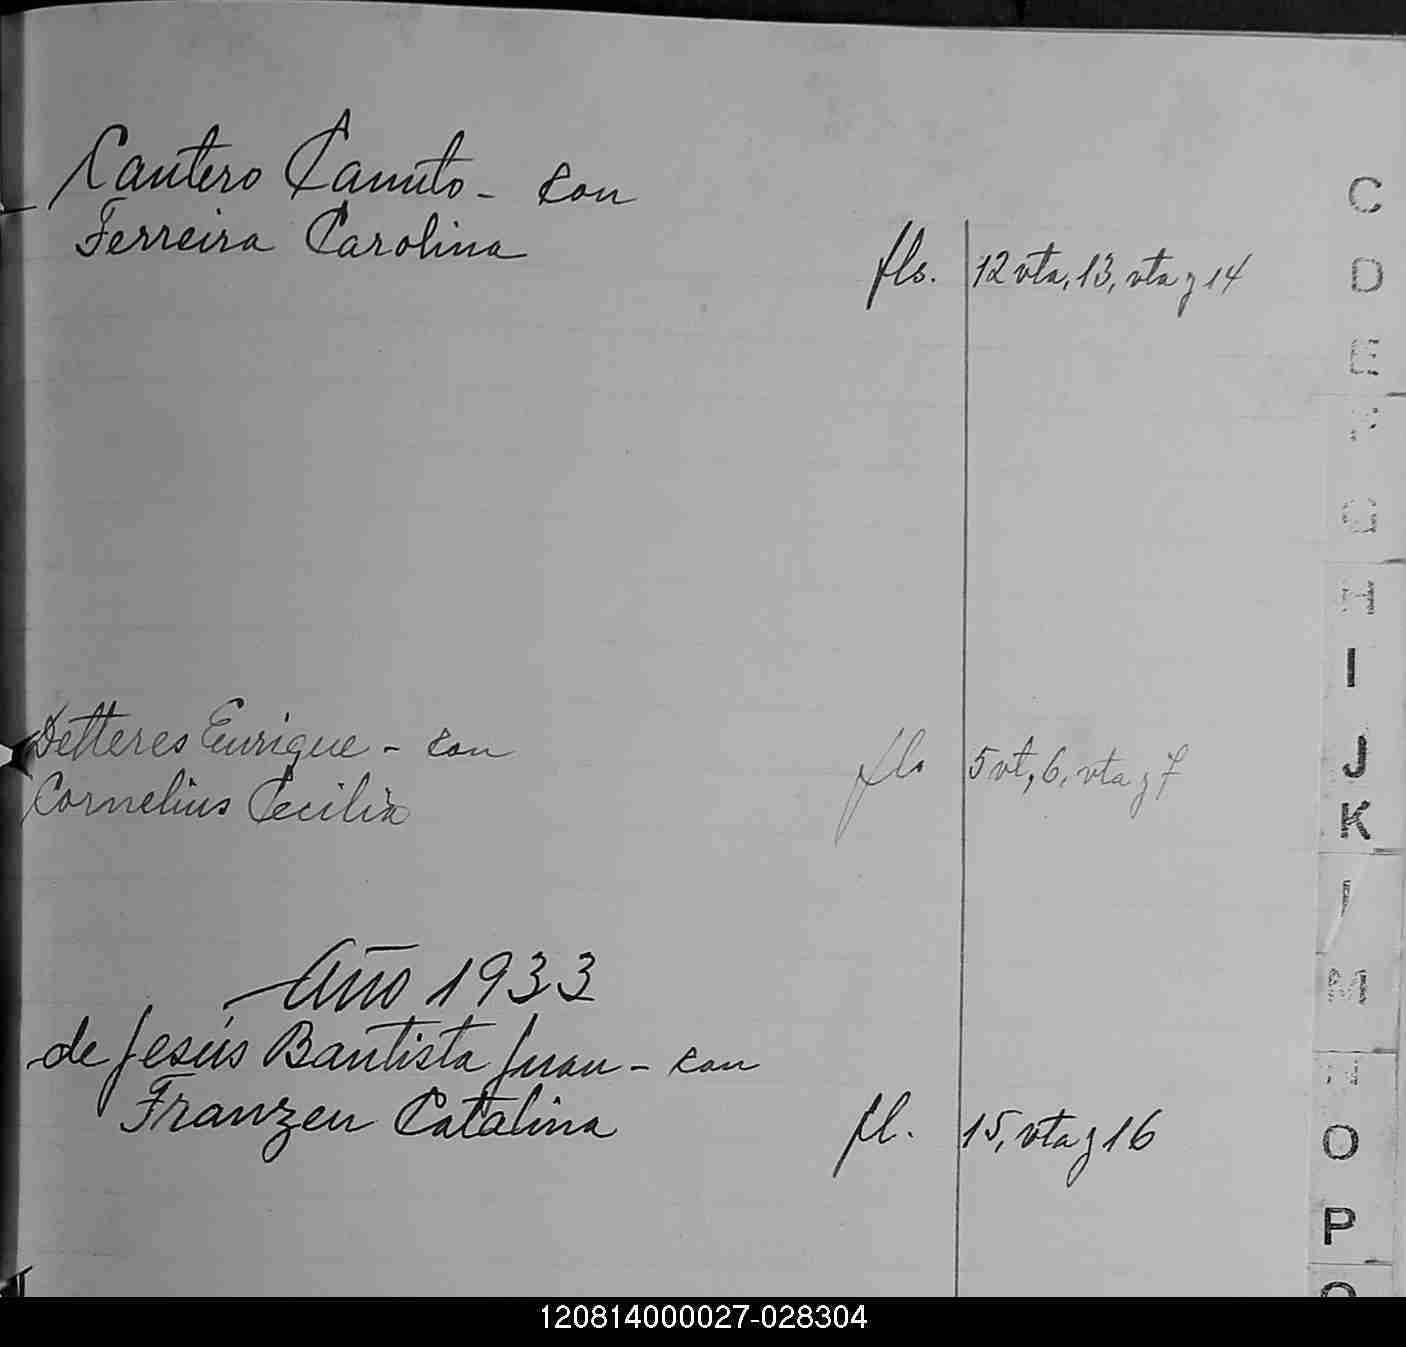 Cantero Canuto - con
Ferreira Carolina
fls. 12 vta, 13, vta y 14
Detteres Enrique - con
Cornelius Cecilia
fls 5 vt, 6, vta y 7
Año 1933
de Jesús Bautista Juan - con
Franzen Catalina
fl. 15, vta y 16
C
D
E
F
G
H
I
J
K
L
M
N
O
P
120814000027-028304